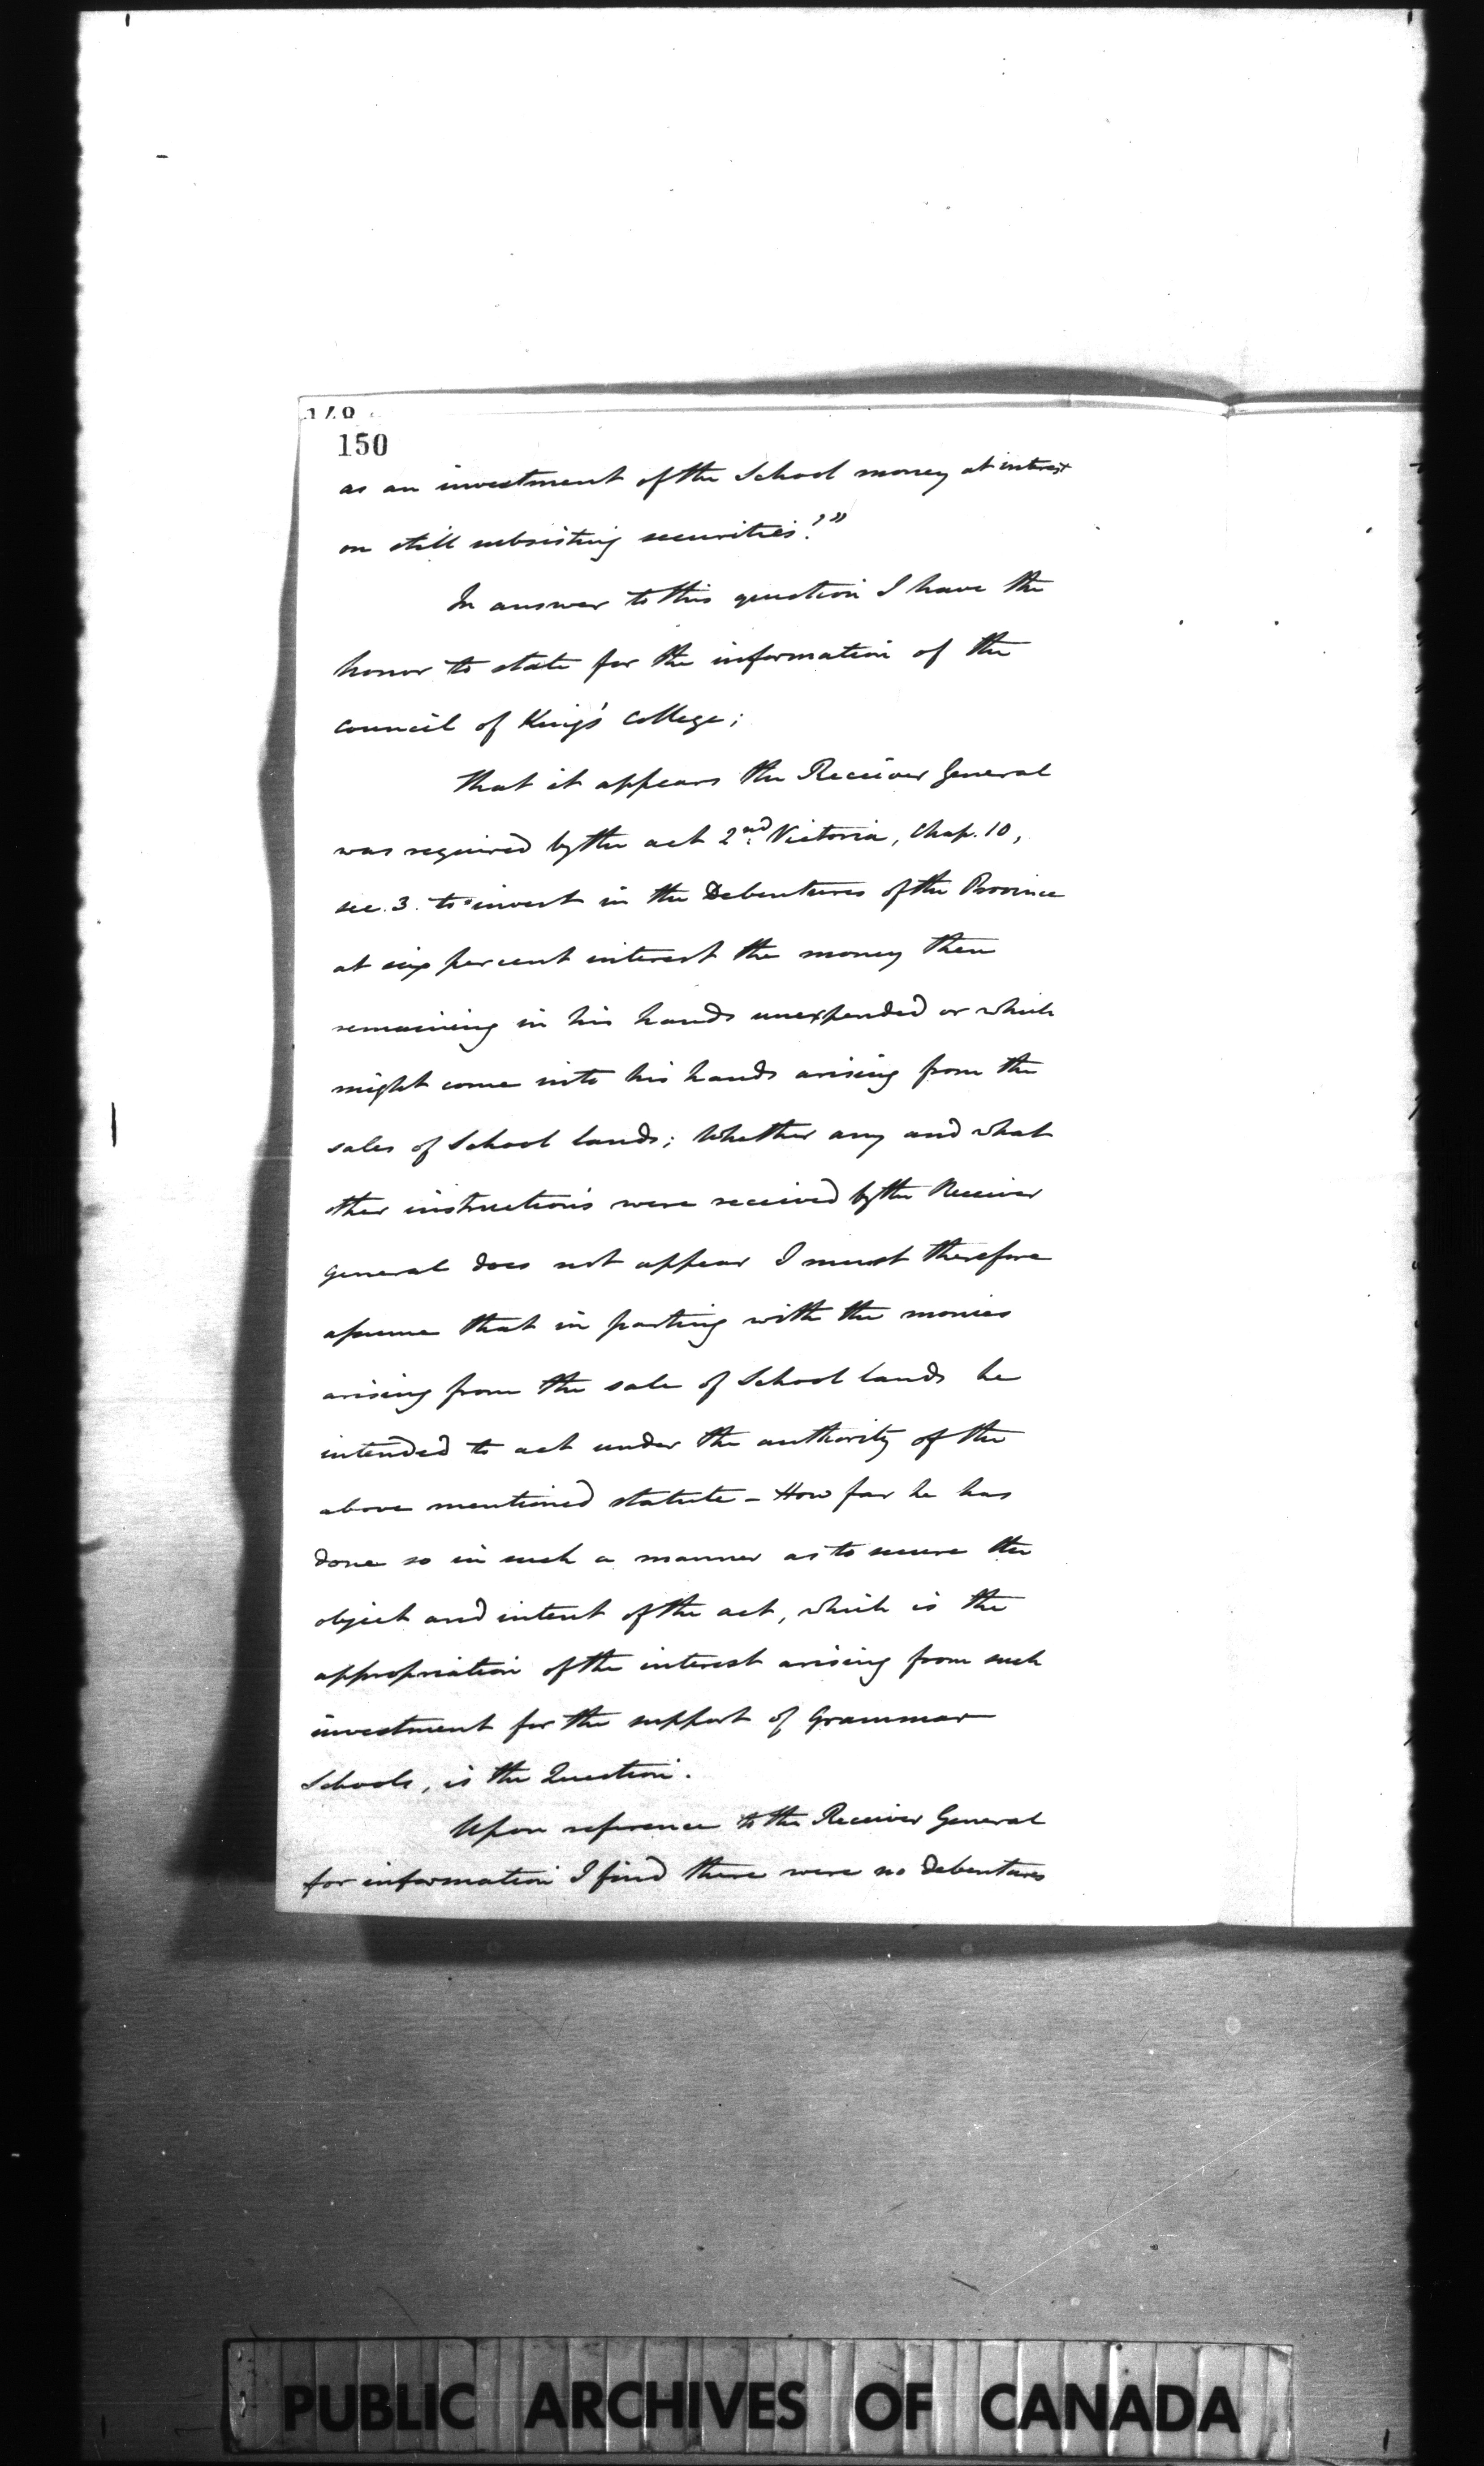 150
as an investment of the School money at interest
on still subsisting securities?"
In answer to this question I have the
honor to state for the information of the
council of King's College;
That it appears the Receiver General
was required by the act 2nd Victoria, Chap. 10,
sec. 3. to invest in the Debentures of the Province
at six per cent interest the money then
remaining in his hands unexpended or which
might come into his hands arising from the
sales of School lands; Whether any and what
other instructions were received by the Receiver
General does not appear I must therefore
assume that in parting with the monies
arising from the sale of School lands he
intended to act under the authority of the
above mentioned statute - How far he has
done so in such a manner as to secure the
object and intent of the act, which is the
appropriation of the interest arising from such
investment for the support of Grammar
Schools, is the Question.
Upon reference to the Receiver General
for information I find there were no Debentures
PUBLIC ARCHIVES OF CANADA